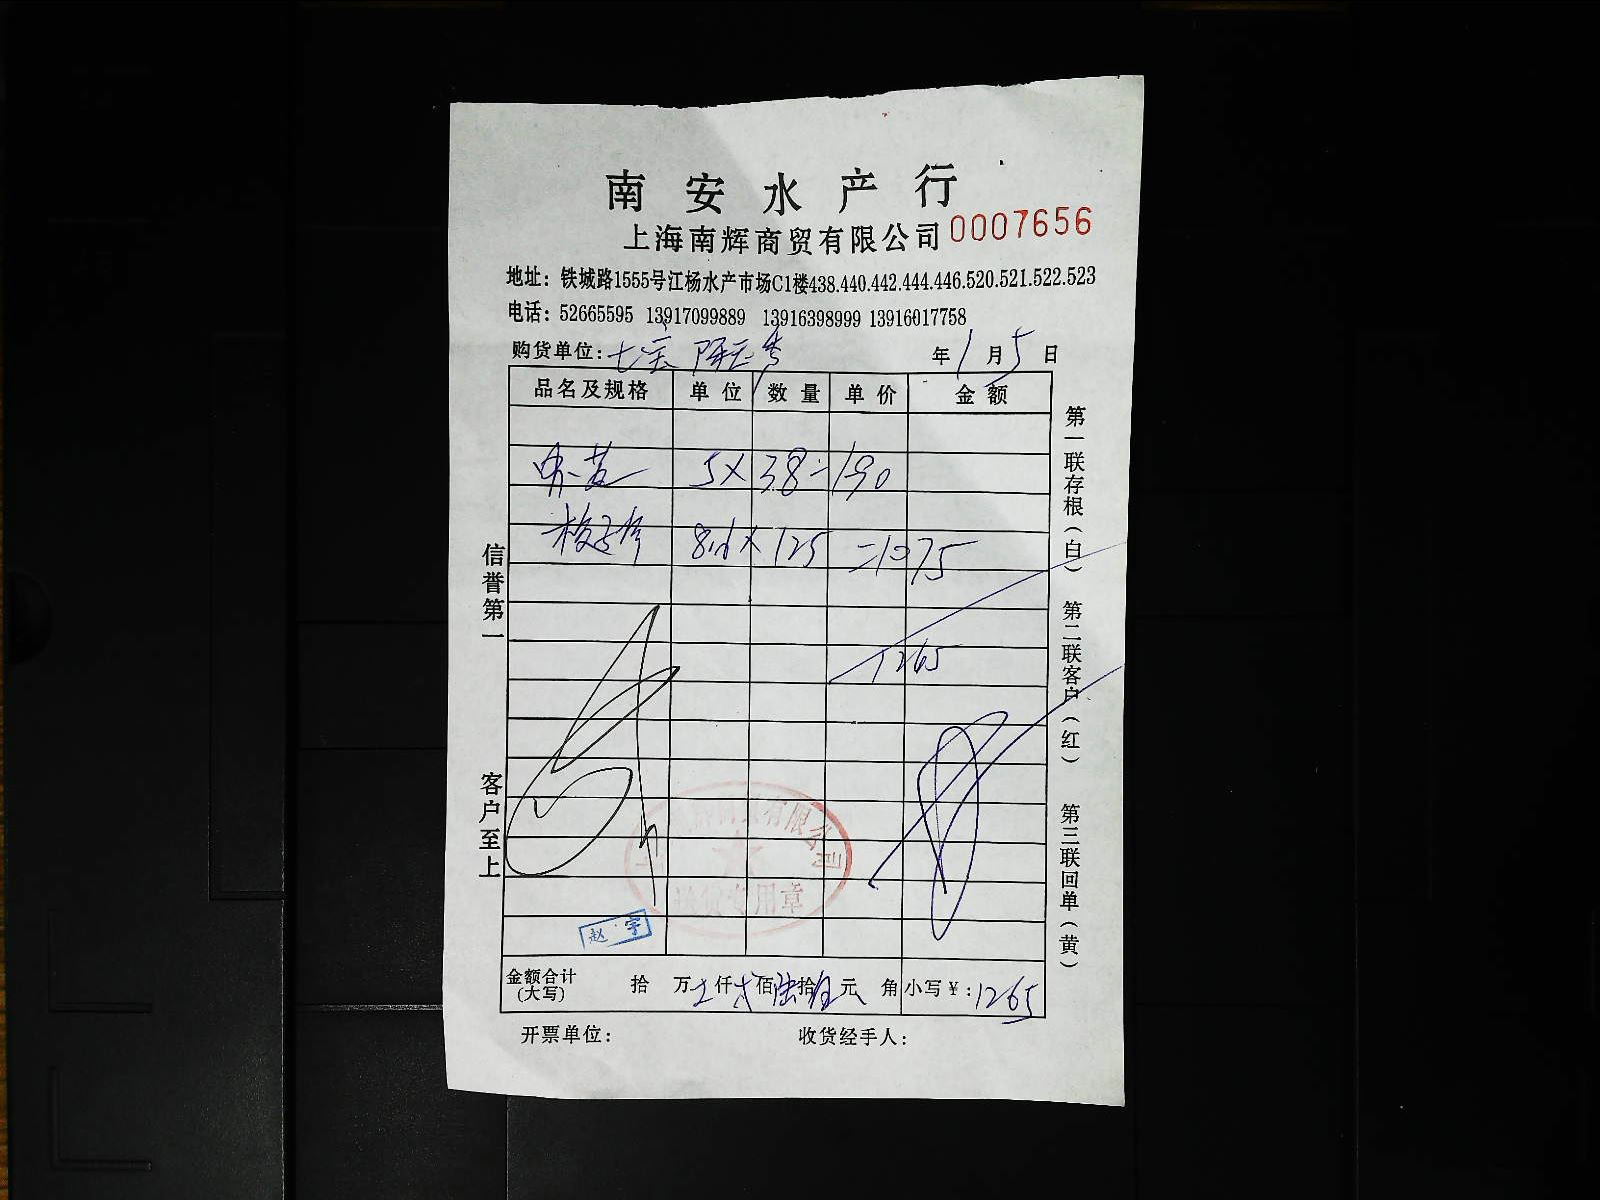 南安水产行
上海南辉商贸有限公司 0007656
地址：铁城路1555号江杨水产市场C1楼438.440.442.444.446.520.521.522.523
电话：52665595 13917099889 13916398999 13916017758
购货单位：七宝 年1月5日
品名及规格 单位 数量 单价 金额
5×38=190
8.6×125=1075
1265
信誉第一
客户至上
第一联存根（白） 第二联客户（红） 第三联回单（黄）
有限公司
专用章
赵宇
金额合计（大写） 拾 万 仟 佰陆拾 元 角 小写￥：1265
开票单位： 收货经手人：